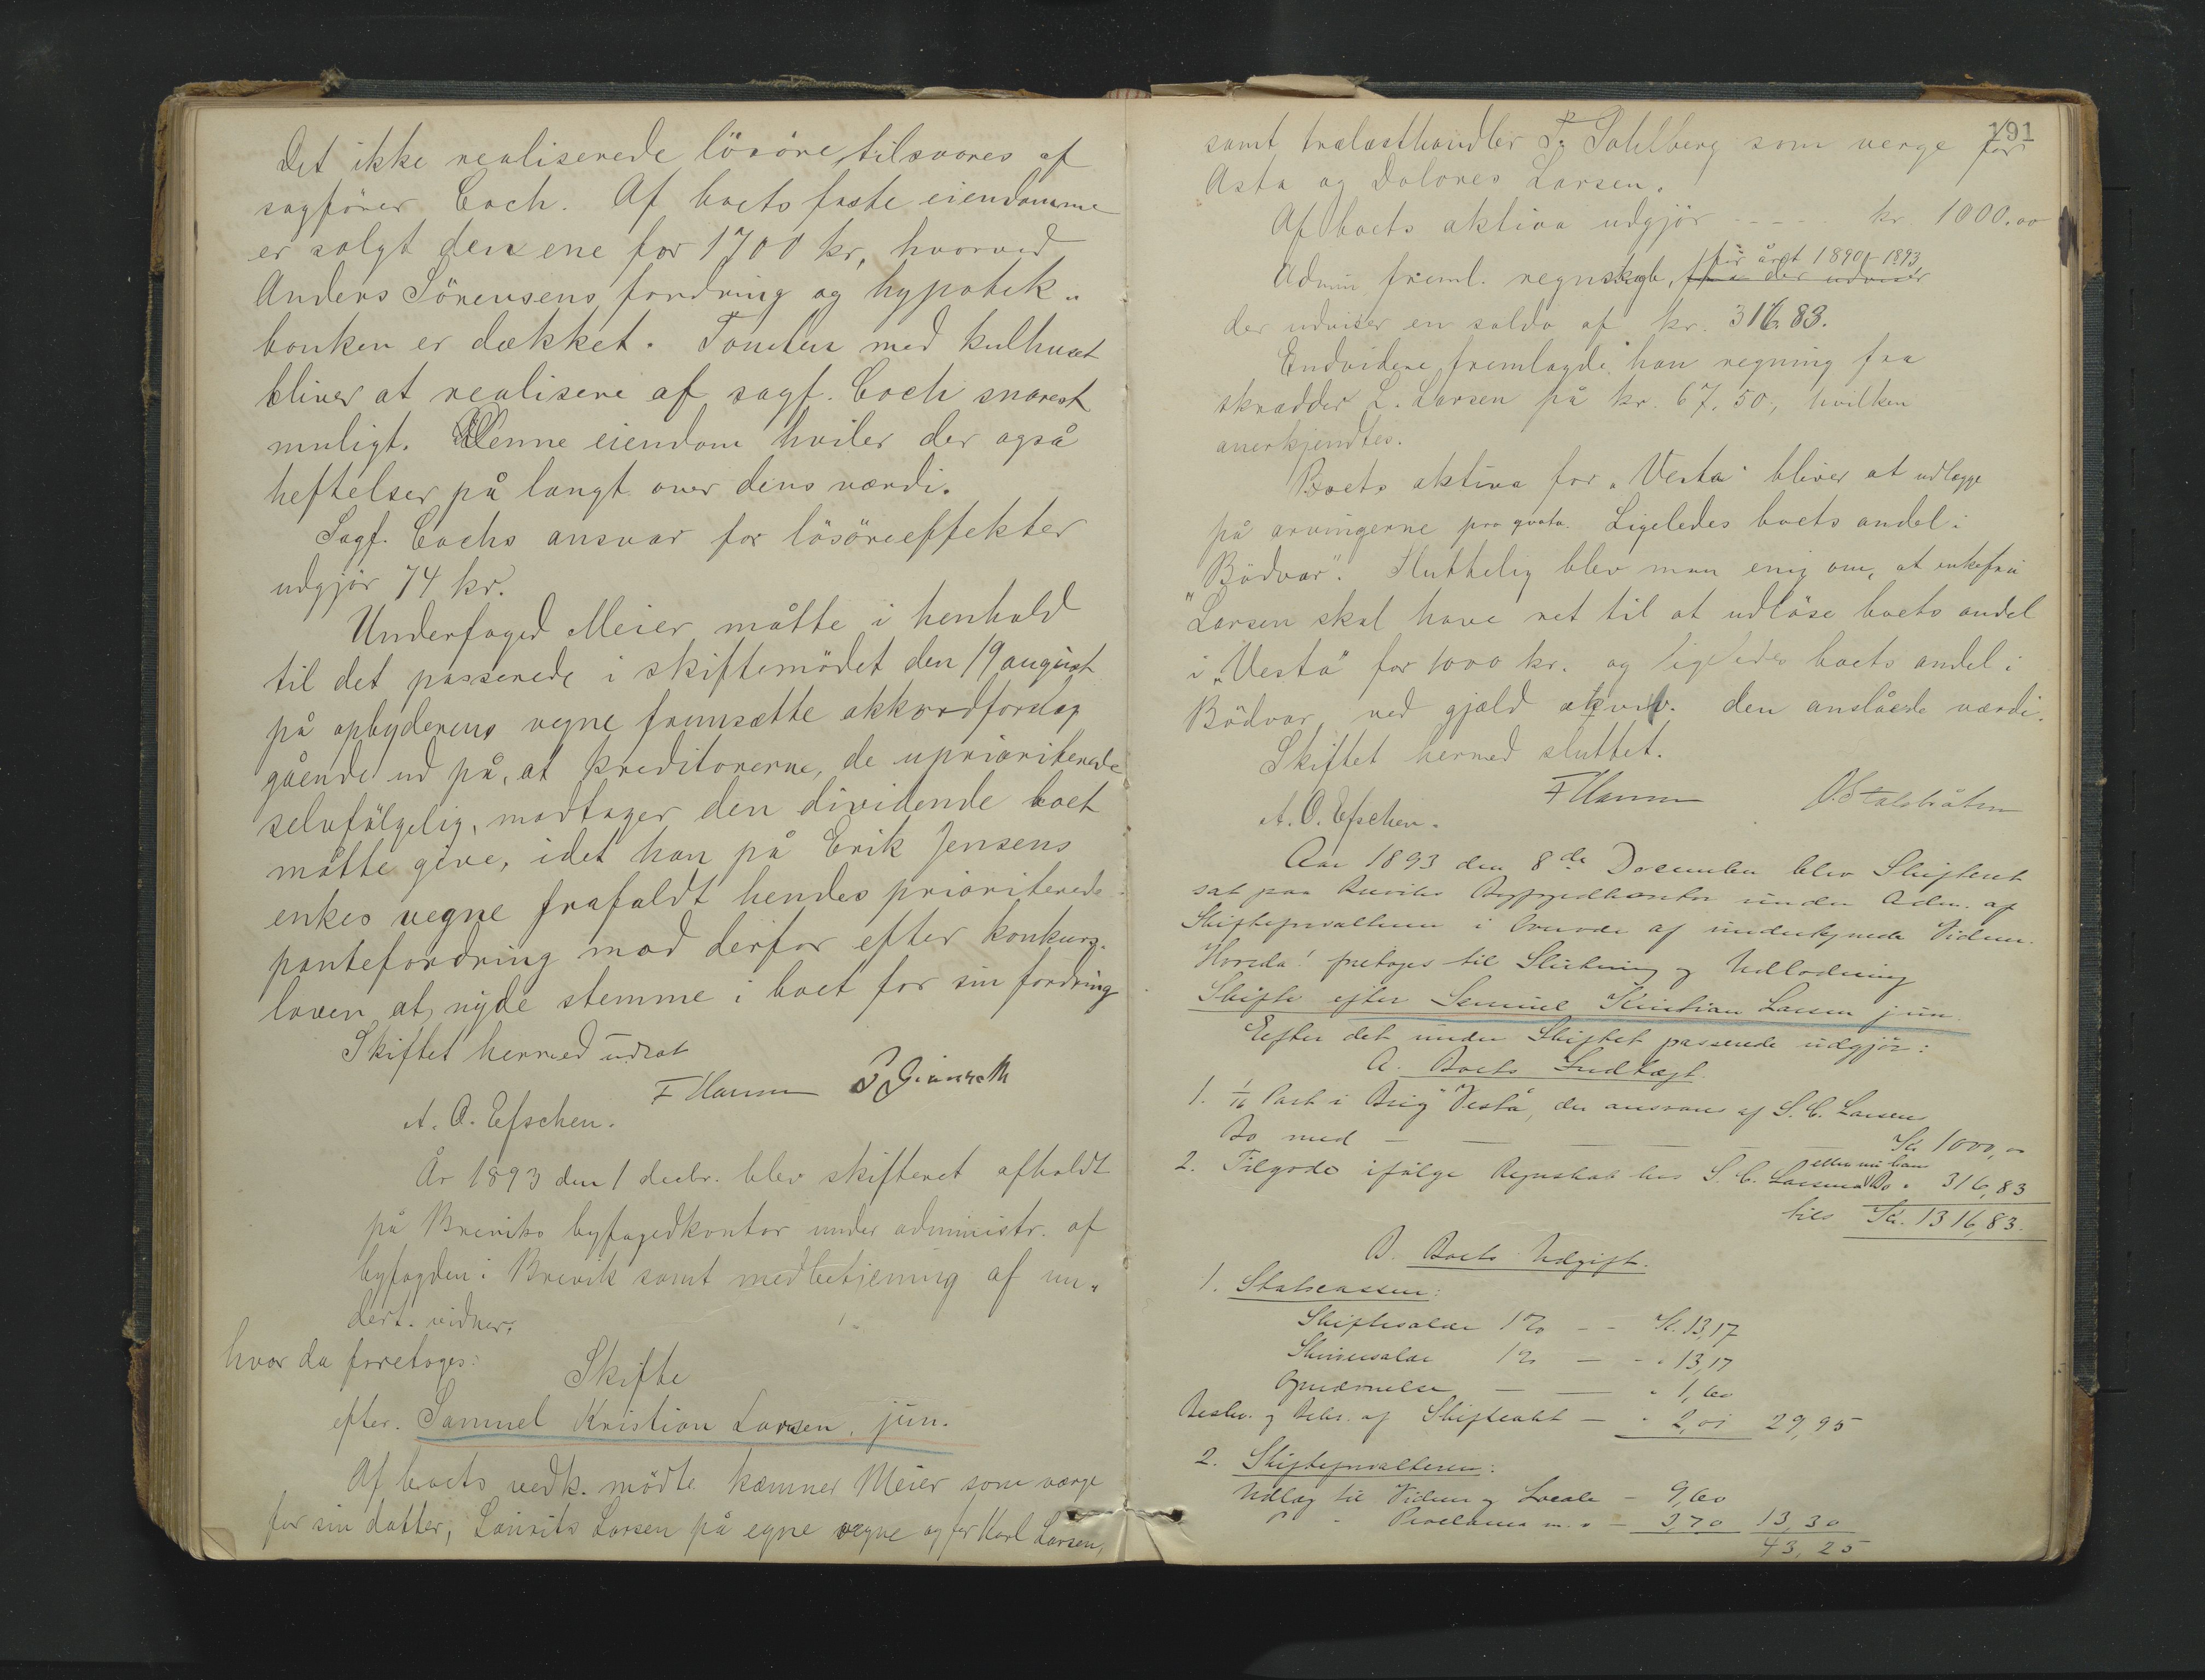 Det ikke realiserede lösöre tilsvares af
sagförer Coch. Af boets faste eiendomme
er solgt den ene for 1700 kr, hvorved
Anders Sörensens fordring og hypotek-
banken er dækket. Tomten med kulhuset
bliver at realisere af sagf. Coch snarest
muligt. På denne eiendom hviler der også
heftelser på langt over dens værdi.
Sagf. Cochs ansvar for lösöreeffekter
udgjör 74 kr.
Underfoged Meier måtte i henhold
til det passerede i skiftemödet den 19 august
på opbyderens vegne fremsætte akkordforslag
gående ud på, at kreditorerne, de uprioriterede
selvfölgelig, modtager den dividende boet
måtte give, idet han på Erik Jensens
enkes vegne frafaldt hendes prioriterede
pantefordring mod derfor efter konkurs-
loven at nyde stemme i boet for sin fordring
Skiftet hermed udsat
F Hansen
A. O. Efschen.
År 1893 den 1 decbr. blev skifteret afholdt
på Breviks byfogedkontor under administr. af
byfogden i Brevik samt medbetjening af un-
dert. vidner,
hvor da foretoges:
Skifte
efter. Samuel Kristian Larsen, jun.
Af boets vedk. mödte kæmner Meier som værge
for sin datter, Laurits Larsen på egne vegne og for Karl Larsen,
191
samt trælasthandler T. Sahlberg som verge for
Asta og Dolores Larsen.
Af boets aktiva udgjör - - - - kr 1000.00
for året 1890-1893
Admin freml. regnskab, der udviser
der udviser en saldo af kr. 316.83.
Endvidere fremlagde han regning fra
skrædder L. Larsen på kr. 67.50, hvilken
anerkjendtes.
Boets aktiva for "Vesta" bliver at udlægge
på arvingerne pro qvota. Ligeledes boets andel i
"Bödvar". Sluttelig blev man enig om, at enkefru
Larsen skal have ret til at udlöse boets andel
i "Vesta" for 1000 kr. og ligeledes boets andel i
Bödvar ved gjæld den anslåede værdi.
Skiftet hermed sluttet.
F Hansen
A. O. Efschen.
Aar 1893 den 8de December blev Skifteret
sat paa Breviks Byfogedkontor under Adm. af
Skifteforvalteren i Overvær af undertegnede Vidner.
Hvorda! foretoges til Slutning og Udlodning
Skifte efter Samuel Kristian Larsen jun.
Efter det under Skiftet passerede udgjör:
A. Boets Indtægt.
1. 1/16 Part i Brig "Vesta", der ansvares af S. C. Larsens
Bo med - - - - - Kr 1000,00
2. Tilgode ifölge Regnskab hos S. C. Larsens Bo " 316,83
tils Kr. 1316,83.
B. Boets Udgift.
1. Statscassen:
Skiftesalær 1% - - Kr. 13,17
Skriversalær 1% - - " 13,17
- - " 1,60
Beskr. og Bebr. af Skifteakt - " 2,01 29,95
2. Skifteforvalteren:
Udlæg til Vidner og Locale - 9,60
" " Proclama m.v - 3,70 13,30
43,25